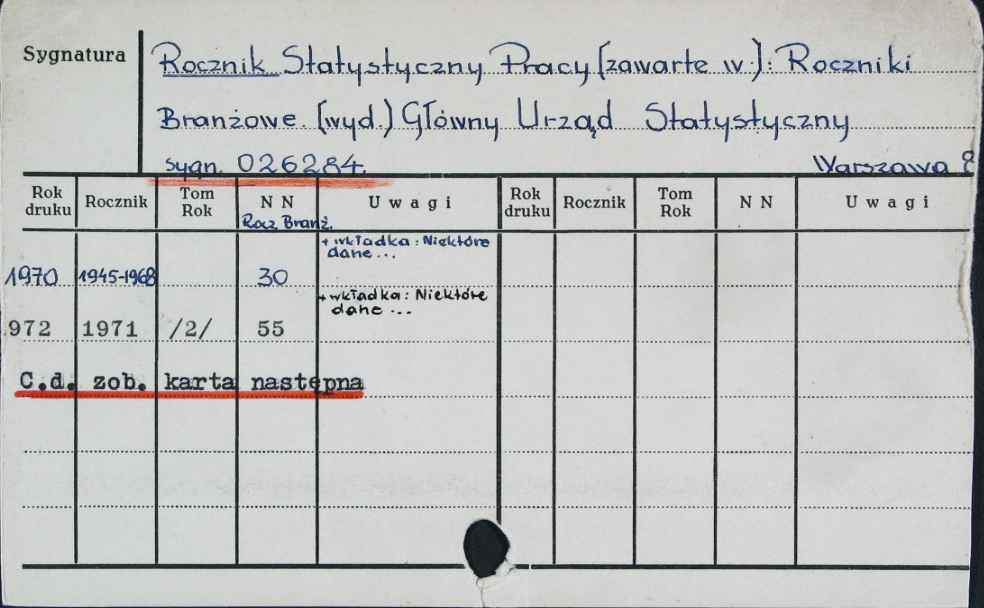 Sygnatura
Rocznik Statystyczny Pracy [zawarte w:]: Roczniki
Branżowe. [wyd.] Główny Urząd Statystyczny
sygn. 026284. Warszawa 8
Rok druku Rocznik Tom Rok N N Uwagi Rok druku Rocznik Tom Rok N N Uwagi
Rocz. Branż.
+ wkładka: Niektóre
dane...
1970 1945-1968 30
+ wkładka: Niektóre
dane ...
972 1971 /2/ 55
C.d. zob. karta następna